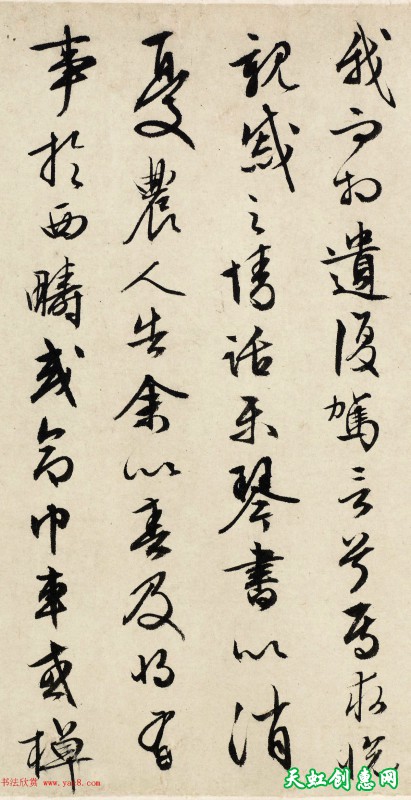 我而相遺復駕言兮焉求悅
親戚之情話樂琴書以消
憂農人告余以春及將有
事於西疇或命巾車或棹
书法欣赏 www.yac8.com
天虹创惠网